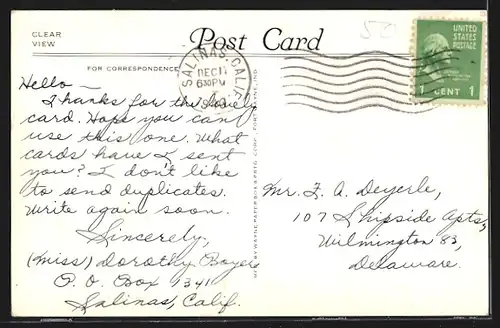 CLEAR
VIEW
Post Card
50
FOR CORRESPONDENCE
SALINAS, CALIF.
DEC 11
630PM
UNITED STATES
POSTAGE
1 CENT 1
Hello—
Thanks for the lovely
card. Hope you can
use this one. What
cards have I sent
you? I don't like
to send duplicates.
Write again soon.
Sincerely,
(Miss) Dorothy Boyer
P. O. Box 1341
Salinas, Calif.
Mr. F. A. Deyerle,
107 Shipside Apts,
Wilmington 83,
Delaware.